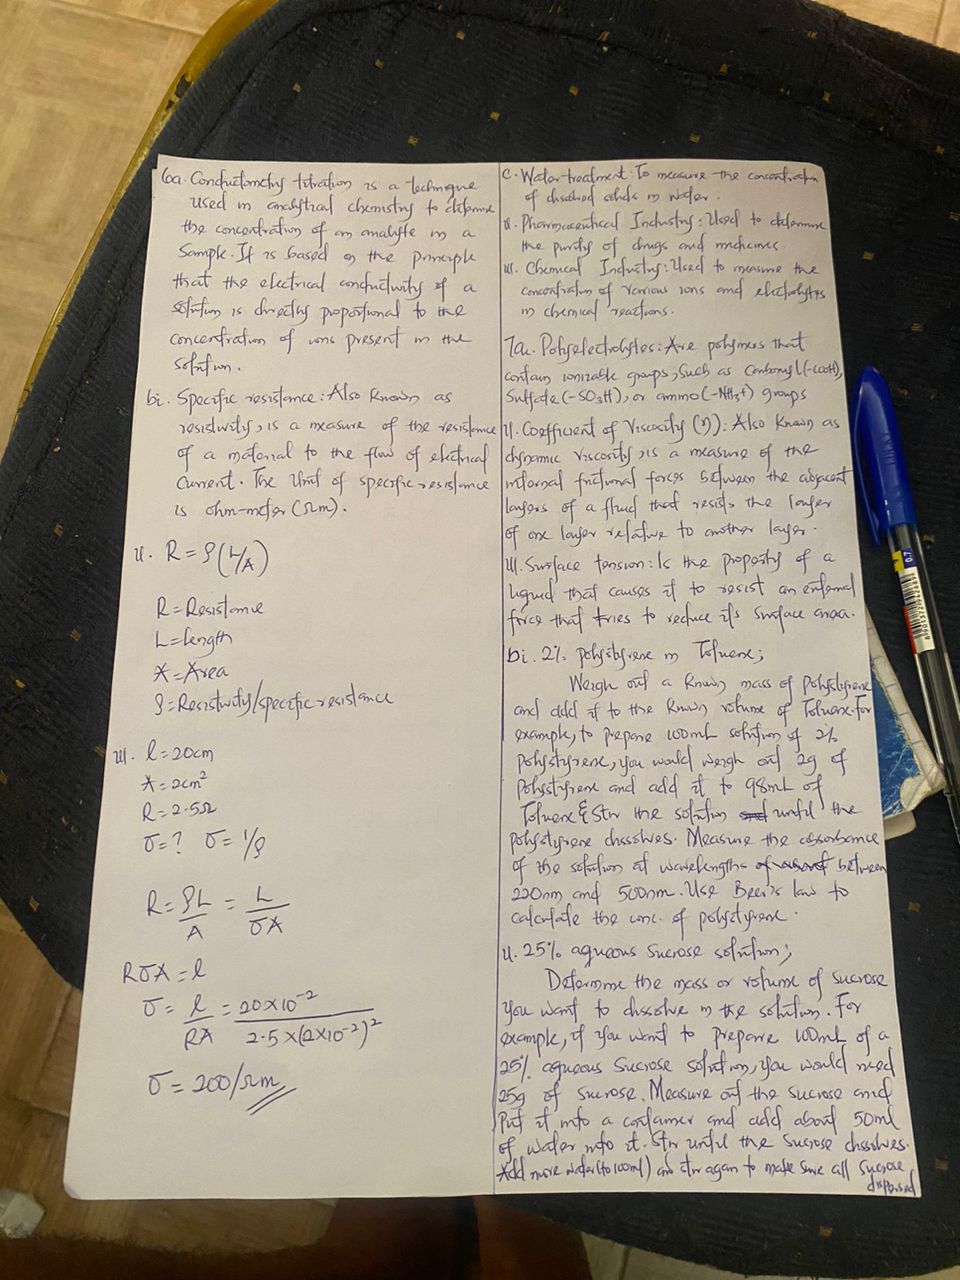 6a. Conductometry titration is a technique
used in analytical chemistry to determine
the concentration of an analyte in a
Sample. It is based on the principle
that the electrical conductivity of a
solution is directly proportional to the
concentration of ions present in the
solution.
bi. Specific resistance: Also known as
resistivity, is a measure of the resistance
of a material to the flow of electrical
current. The Unit of specific resistance
is ohm-meter (Ωm).
ii. R = ρ(L/A)
R = Resistance
L = length
A = Area
ρ = Resistivity/specific resistance
iii. l = 20cm
A = 2cm²
R = 2.5Ω
σ = ? σ = 1/ρ
R = ρL/A = L/σA
RσA = l
σ = l/RA = 20×10⁻²/2.5×(2×10⁻²)²
σ = 200/Ωm
c. Water treatment: To measure the concentration
of dissolved solids in water.
ii. Pharmaceutical Industry: Used to determine
the purity of drugs and medicines.
iii. Chemical Industry: Used to measure the
concentration of various ions and electrolytes
in chemical reactions.
7ai. Polyelectrolytes: Are polymers that
contain ionizable groups, Such as Carbonyl (-COOH),
Sulfate (-SO₃H), or amino (-NH₃+) groups
ii. Coefficient of Viscosity (η): Also Known as
dynamic viscosity, is a measure of the
internal frictional forces between the adjacent
layers of a fluid that resists the layer
of one layer relative to another layer.
iii. Surface tension: Is the property of a
liquid that causes it to resist an external
force that tries to reduce its surface area.
bi. 2% polystyrene in Toluene;
Weigh out a known mass of Polystyrene
and add it to the known volume of Toluene. For
example, to prepare 100mL solution of 2%
polystyrene, you would weigh out 2g of
polystyrene and add it to 98mL of
Toluene & Stir the solution until the
polystyrene dissolves. Measure the absorbance
of the solution at wavelengths between
220nm and 500nm. Use Beer's law to
calculate the conc. of polystyrene.
ii. 25% aqueous Sucrose solution;
Determine the mass or volume of sucrose
you want to dissolve in the solution. For
example, if you want to prepare 100mL of a
25% aqueous Sucrose solution, you would need
25g of sucrose. Measure out the sucrose and
Put it into a container and add about 50ml
of water into it. Stir until the Sucrose dissolves.
Add more water (to 100ml) and stir again to make sure all sucrose
dispersed
0.7